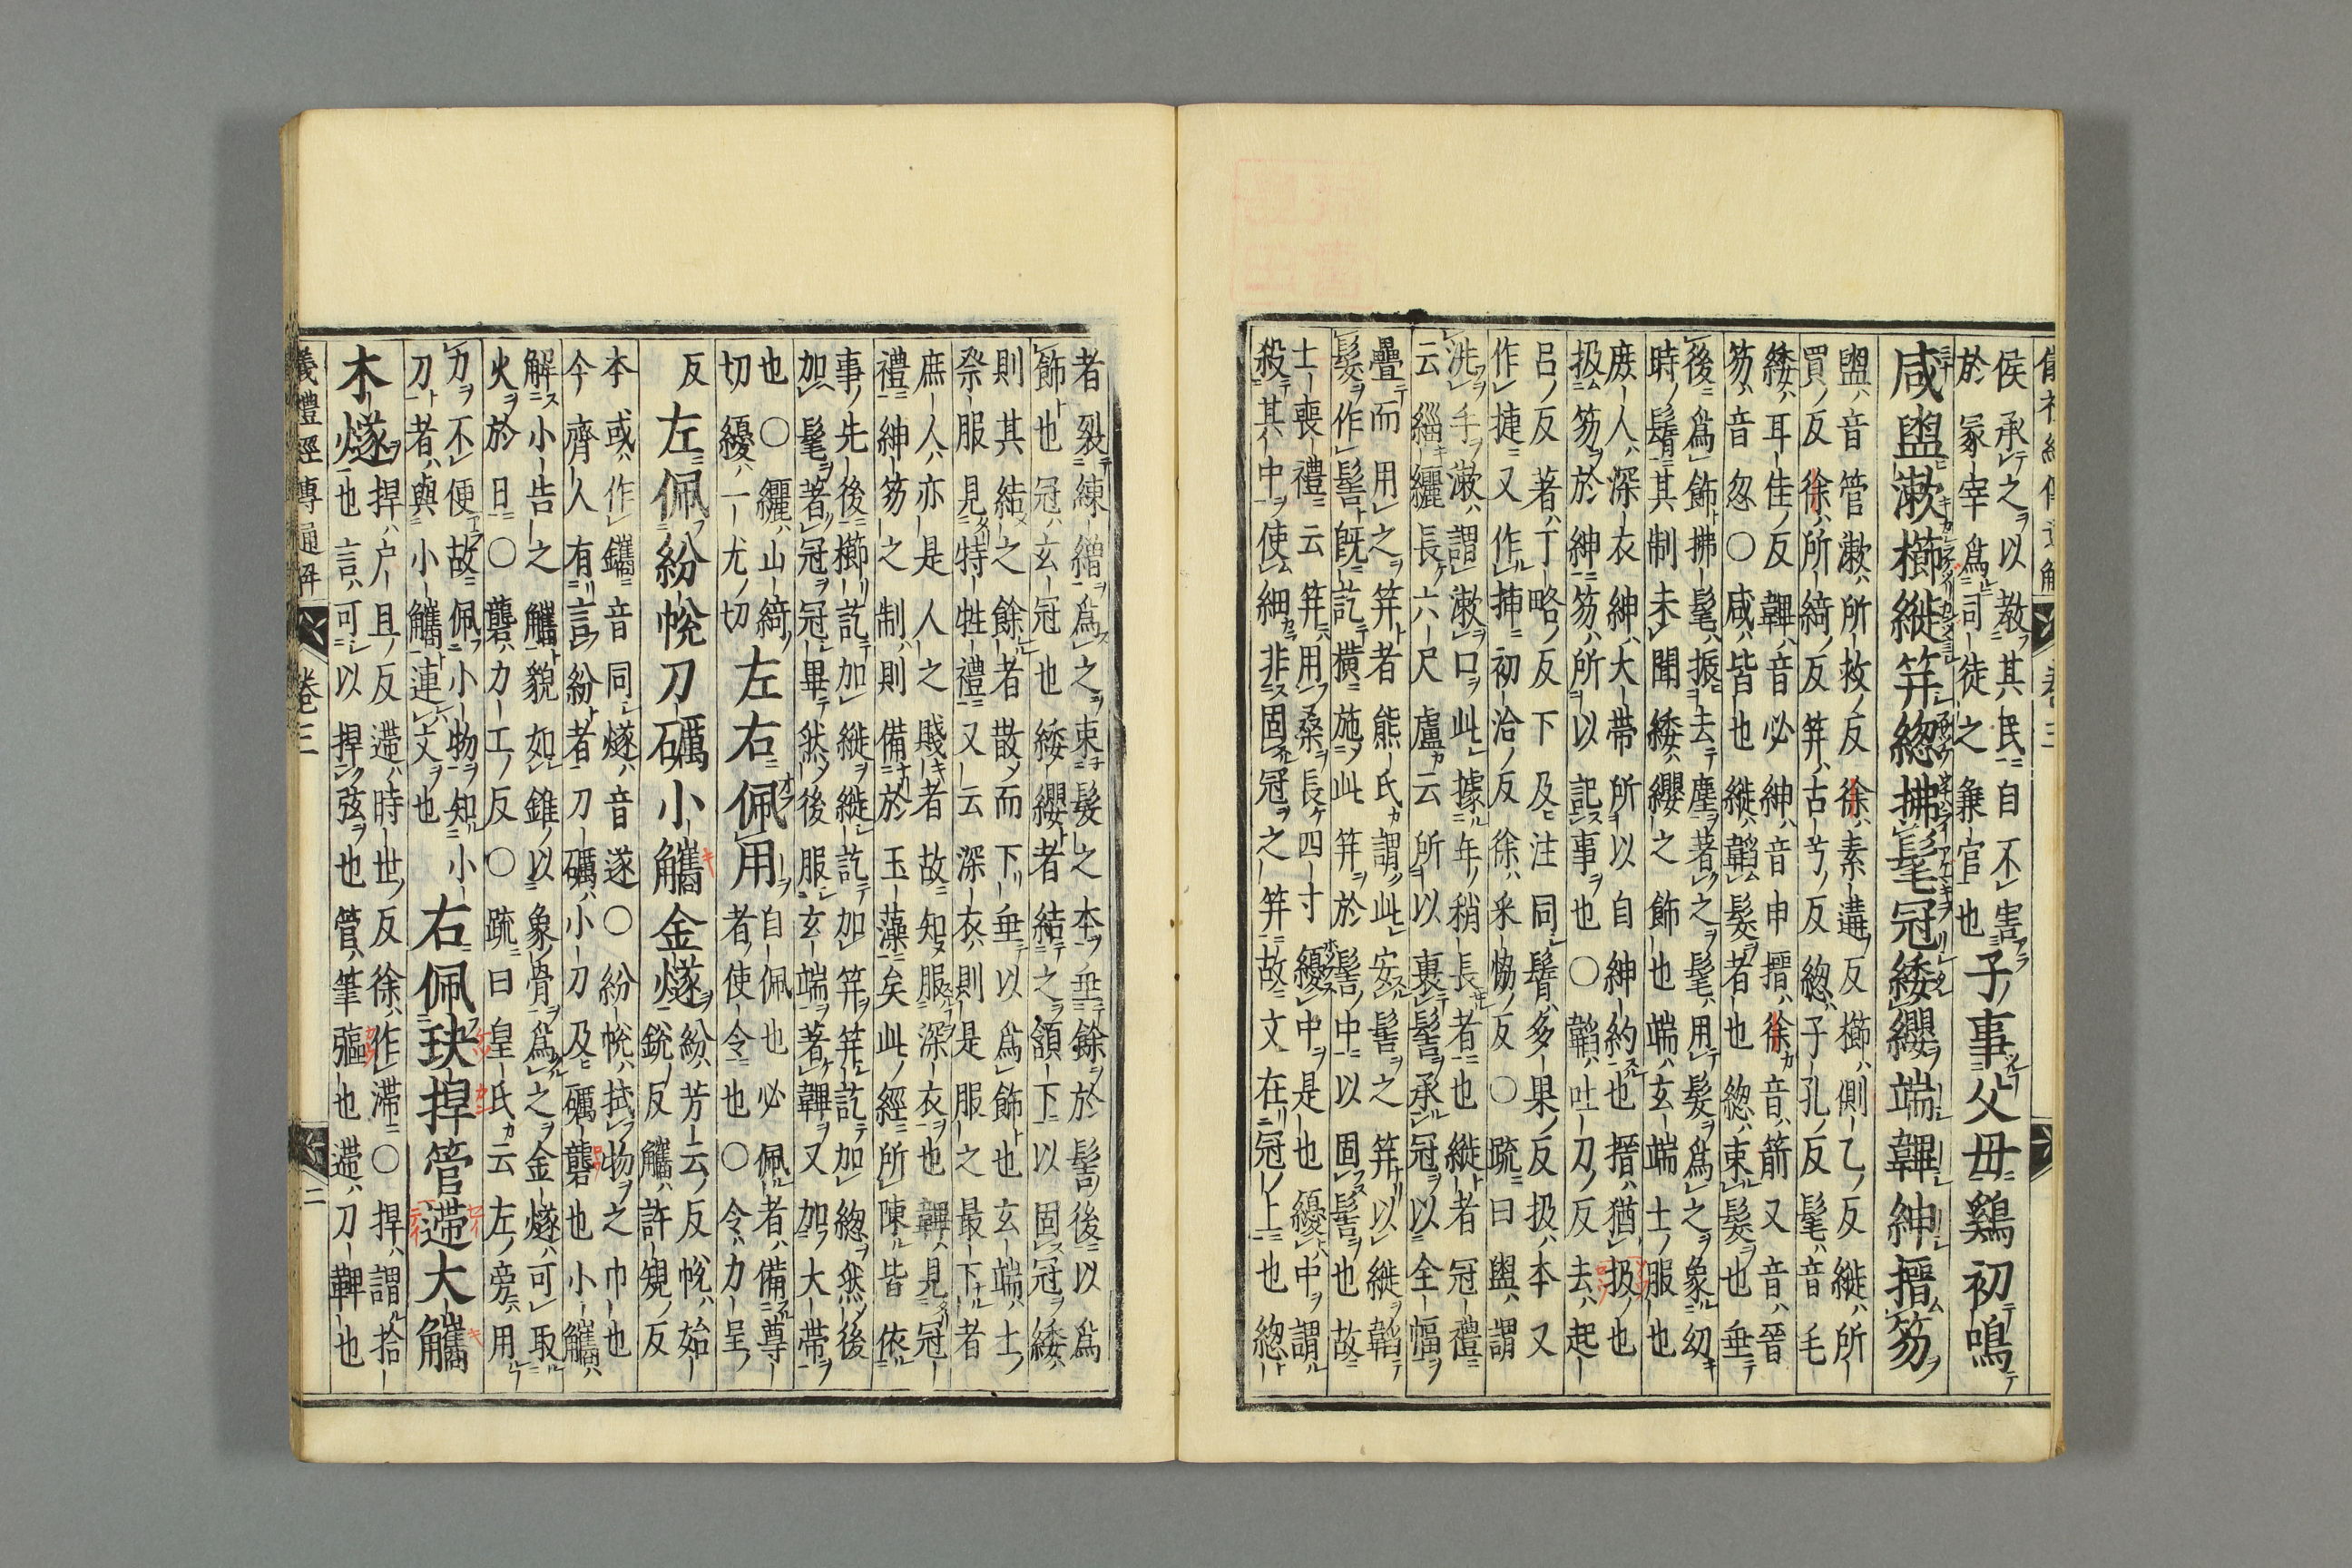 儀禮經傳通解 卷三
侯承之以教其民自不害
於冢宰爲司徒之兼官也
子事父母雞初鳴
咸盥漱櫛縰笄總拂髦冠緌纓端韠紳搢笏
盥音管漱所救反徐素遘反櫛側乙反縰所
買反徐所綺反笄古兮反總子孔反髦音毛
緌耳佳反韠音必紳音申搢徐音箭又音晉
笏音忽〇咸皆也縰韜髮者也總束髮也垂
後爲飾拂髦振去塵著之髦用髮爲之象幼
時鬌其制未聞緌纓之飾也端玄端士服也
庶人深衣紳大帶所以自紳約也搢猶扱也
扱笏於紳笏所以記事也〇韜吐刀反去起
呂反著丁略反下及注同鬌多果反扱本又
作捷又作揷初洽反徐采協反〇疏曰盥謂
洗手漱謂漱口此據年稍長者也縰者冠禮
云緇纚長六尺盧云所以裹髻承冠以全幅
疊而用之笄者熊氏謂此安髻之笄以縰韜
髮作髻旣訖橫施此笄於髻中以固髻也故
士喪禮云笄用桑長四寸纋中是也纋中謂
殺其中使細非固冠之笄故文在冠上也總
者裂練繒爲之束髮之本垂餘於髻後以爲
飾也冠玄冠也緌纓者結之頷下以固冠緌
則其結之餘者散而下垂以爲飾也玄端士
祭服見特牲禮又云深衣則是服之最下者
庶人亦是人之賤者故知服深衣也韠見冠
禮紳笏之制則備於玉藻矣此經所陳皆依
事先後櫛訖加縰縰訖加笄笄訖加總然後
加髦著冠冠畢然後服玄端著韠又加大帶
也〇纚山綺
切纋一尤切
左右佩用
自佩也必佩者備尊
者使令也〇令力呈
反
左佩紛帨刀礪小觿金燧
紛芳云反帨始
銳反觿許規反
本或作鑴音同燧音遂〇紛帨拭物之巾也
今齊人有言紛者刀礪小刀及礪礱也小觿
解小吿之觿貌如錐以象骨爲之金燧可取
火於日〇礱力工反〇疏曰皇氏云左旁用
力不便故佩小物知小
刀者與小觿連文也
右佩玦捍管遰大觿
木燧
捍戶旦反遰時世反徐作滯〇捍謂拾
也言可以捍弦也管筆彄也遰刀鞞也
義禮經傳通解 卷三 二